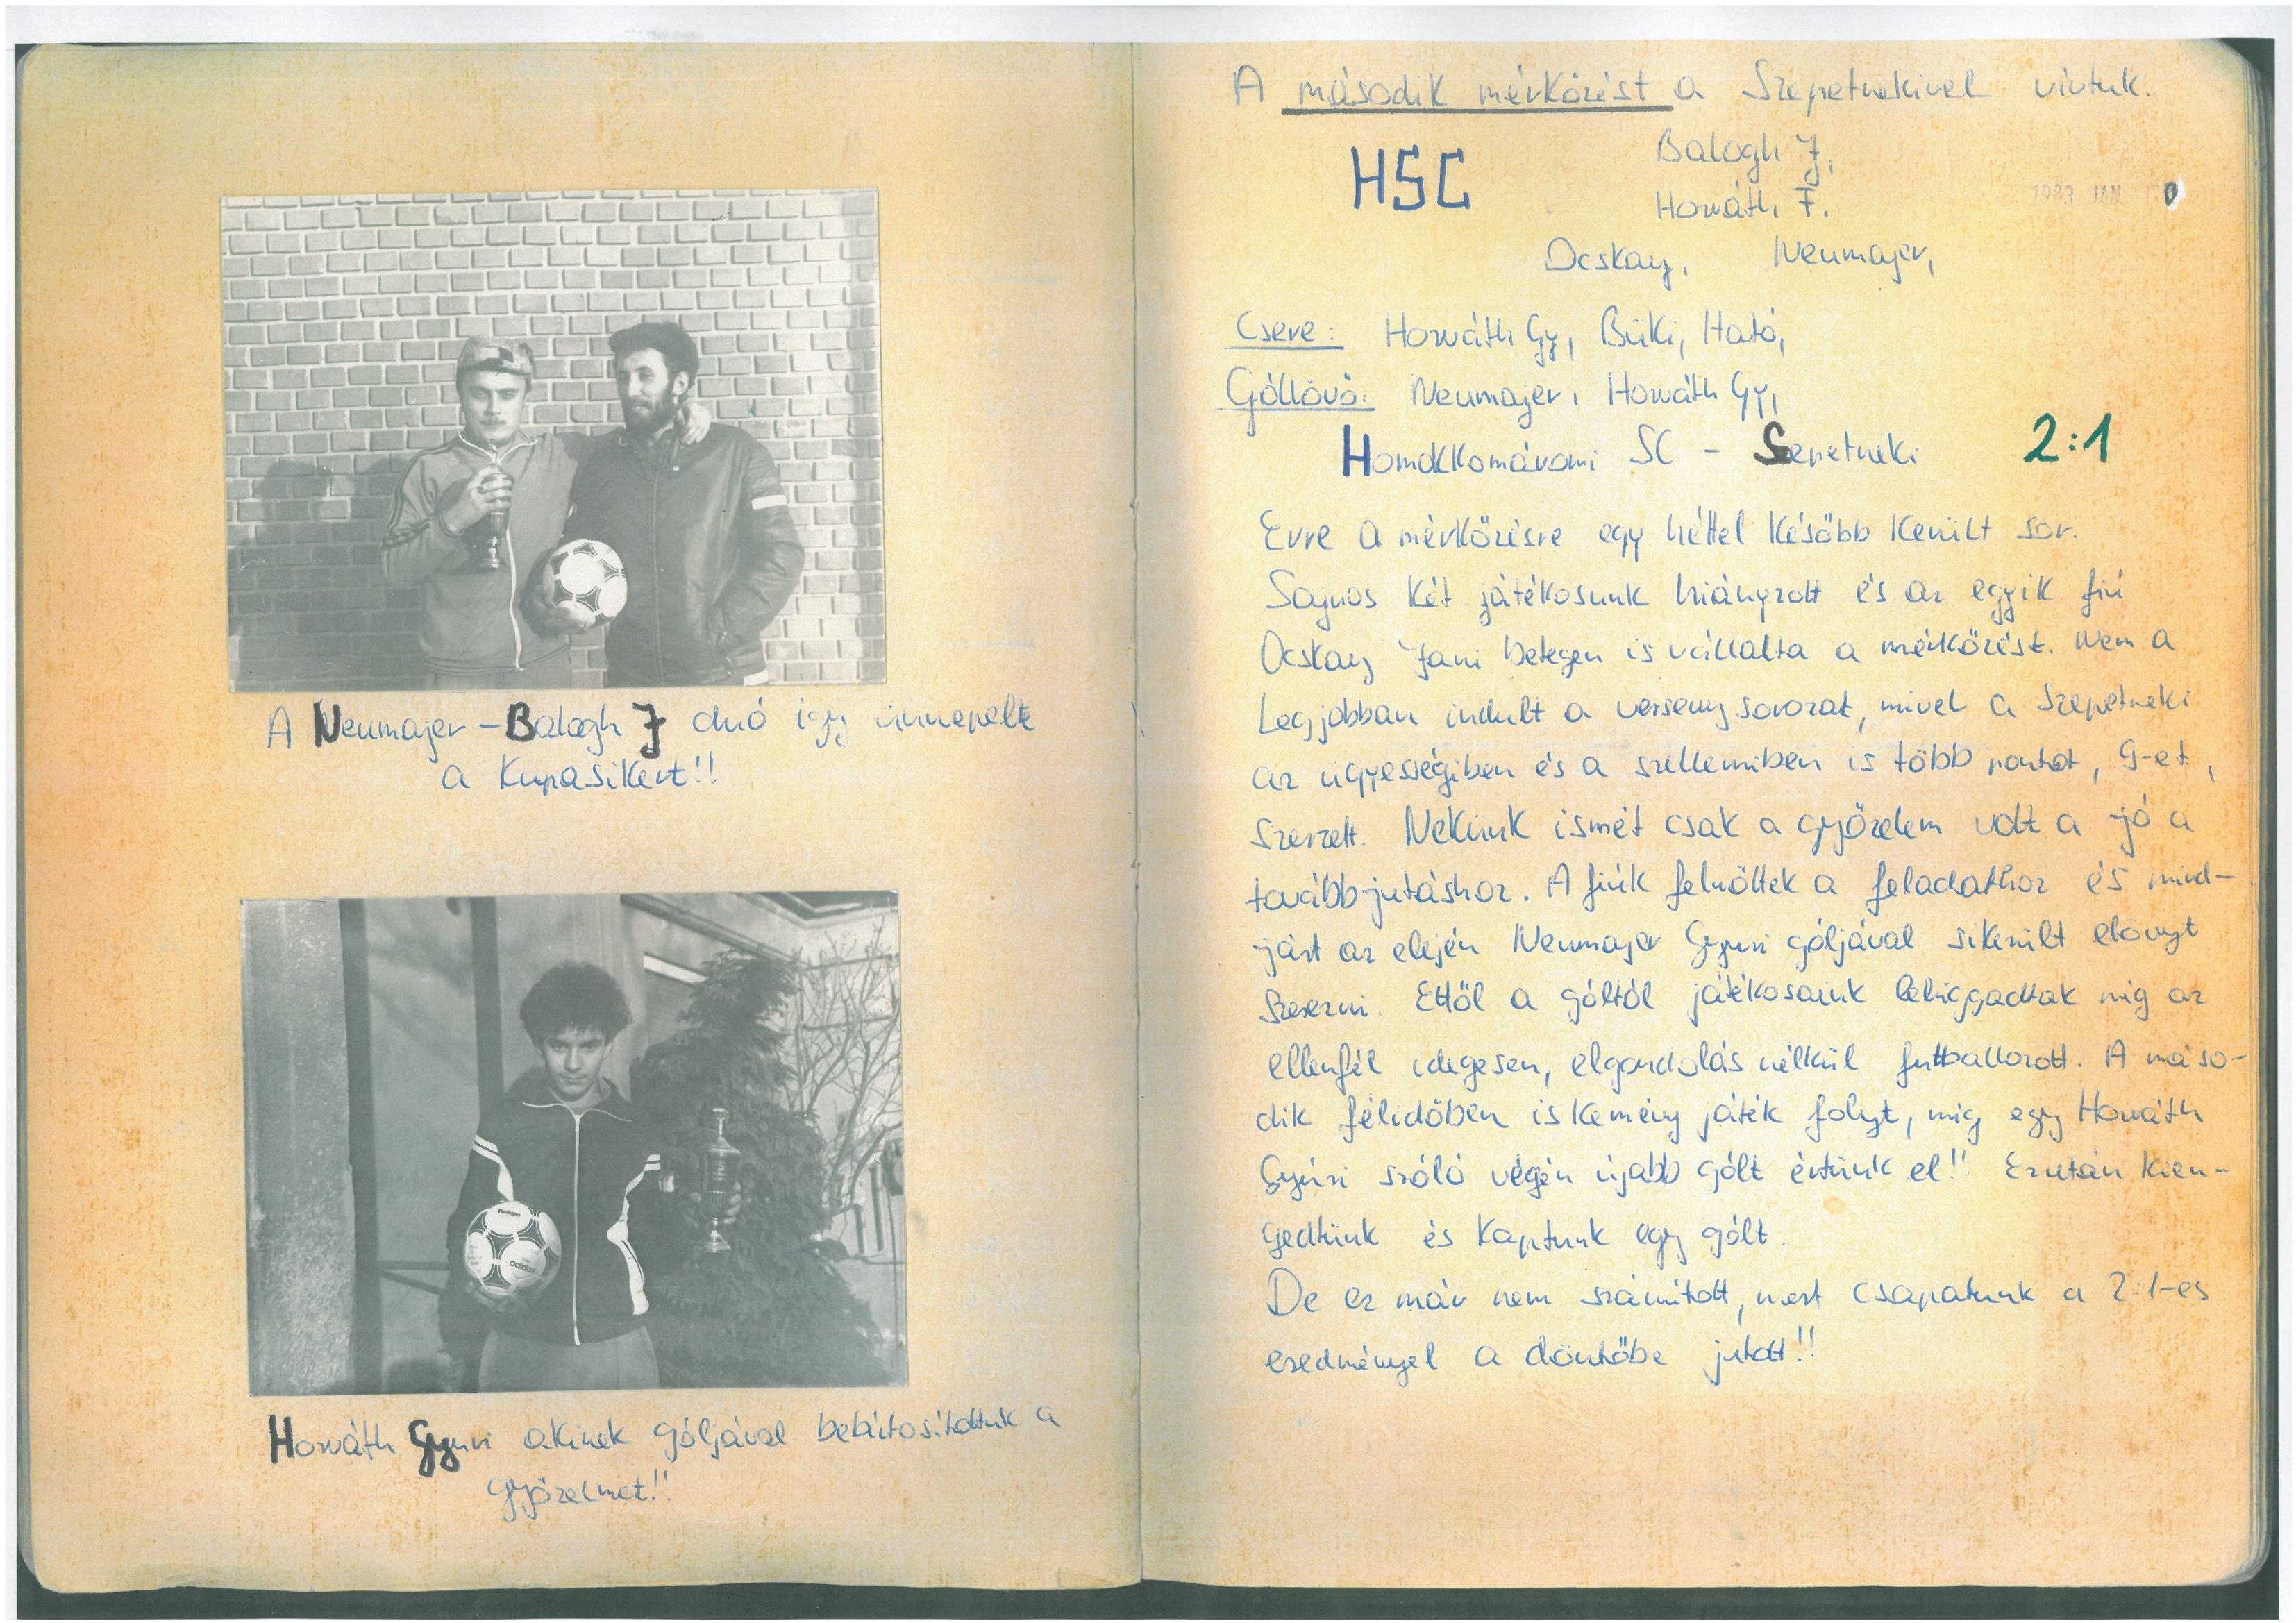 A Neumajer – Balogh J duó igy ünnepelte
a Kupasikert!!
Horváth Gyuri akinek góljával bebiztosítottuk a
győzelmet!!
A második mérkőzést a Szepetnekivel vívtuk.
HSC
Balogh J,
Horváth F.
1983 JAN
Ocskay, Neumajer,
Csere: Horváth Gy, Büki, Ható,
Góllövő: Neumajer, Horváth Gy,
Homokkomáromi SC – Sepetneki 2:1
Erre a mérkőzésre egy héttel később került sor.
Sajnos két játékosunk hiányzott és az egyik fiú
Ocskay Jani betegen is vállalta a mérkőzést. Nem a
Legjobban indult a verseny sorozat, mivel a Szepetneki
az ügyességiben és a szellemiben is több pontot, 9-et,
szerzett. Nekünk ismét csak a győzelem volt a jó a
továbbjutáshoz. A fiúk felnőttek a feladathoz és mind-
járt az elején Neumajer Gyuri góljával sikerült előnyt
szerezni. Ettől a góltól játékosaink lehiggadtak míg az
ellenfél idegesen, elgondolás nélkül futballozott. A máso-
dik félidőben is kemény játék folyt, míg egy Horváth
Gyuri szóló végén újabb gólt értünk el!! Ezután kien-
gedtünk és kaptunk egy gólt.
De ez már nem számított, mert csapatunk a 2:1-es
eredménnyel a döntőbe jutott!!